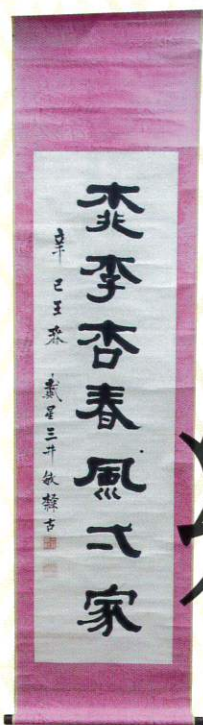 桃李杏春風一家
辛巳王春 戴星三井敏